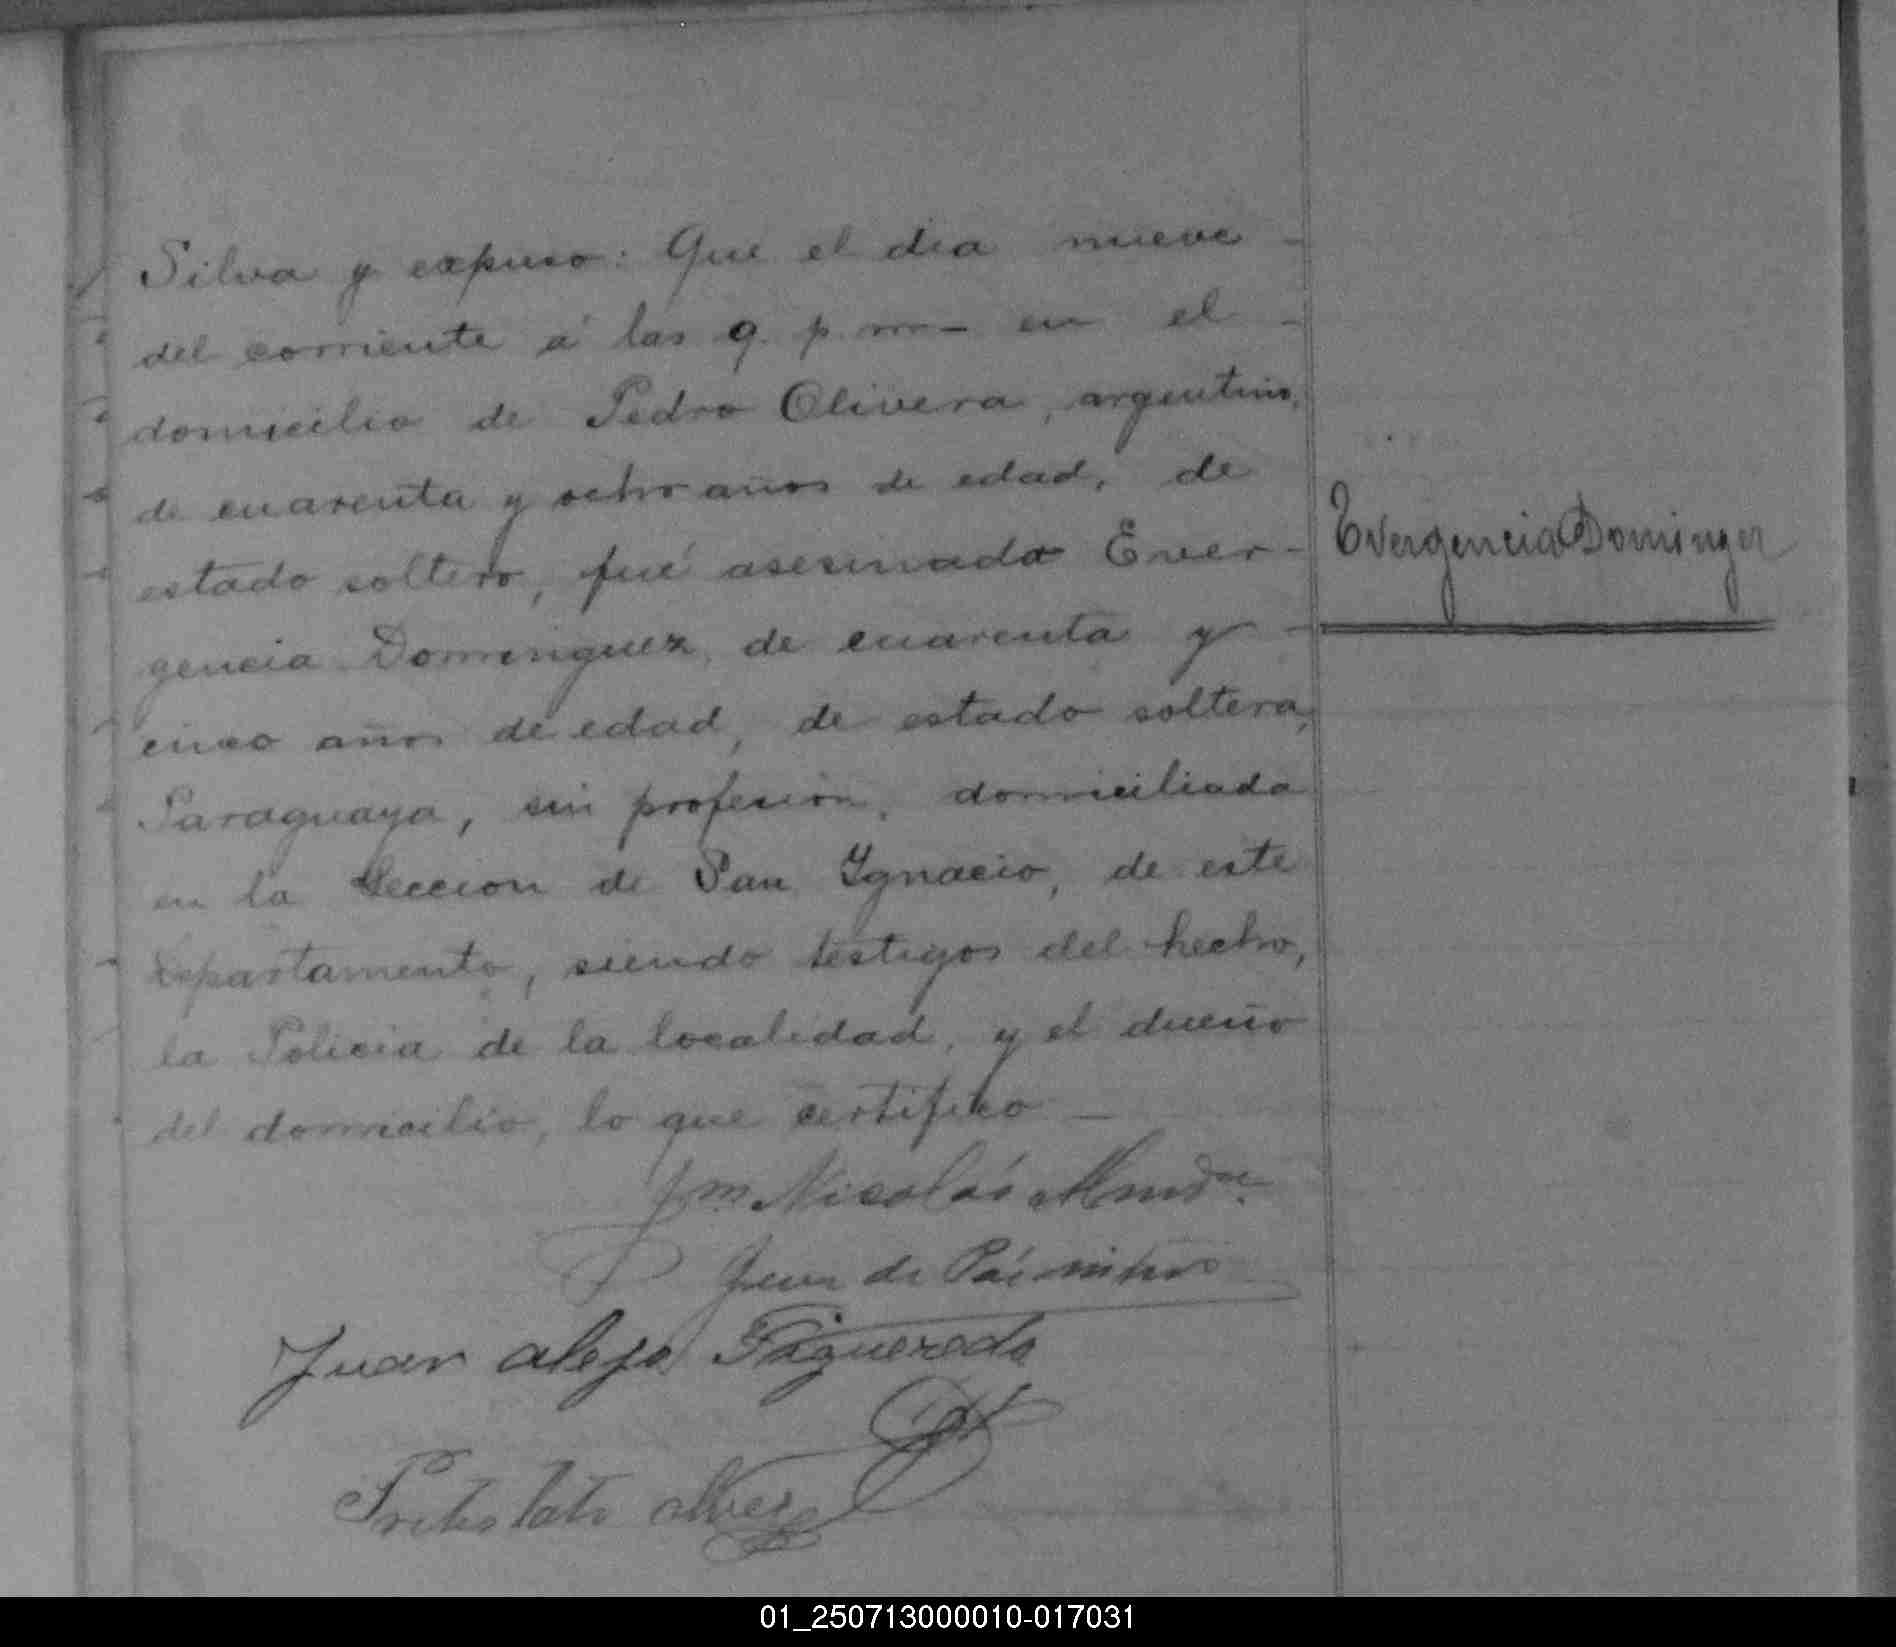 Silva y expuso: Que el dia nueve -
del corriente á las 9. p. m - en el -
domicilio de Pedro Olivera, argentino,
de cuarenta y ocho años de edad, de
estado soltero, fué asesinada Ever-
gencia Dominguez, de cuarenta y -
cinco años de edad, de estado soltera,
Paraguaya, sin profesion, domiciliada
en la Seccion de San Ygnacio, de este
Departamento, siendo testigos del hecho,
la Policia de la localidad, y el dueño
del domicilio, lo que certifico -
Evergencia Dominguez
Nicolás
Juan de
Juan alejo Figueredo
01_250713000010-017031